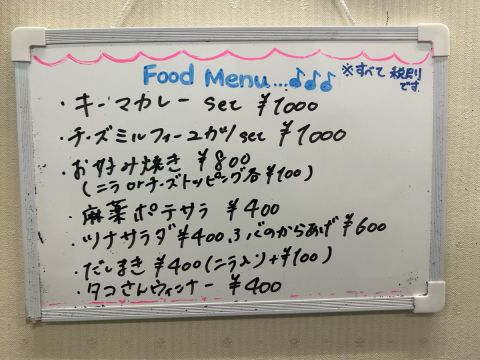 Food Menu...♪♪♪
※すべて税別です
・キーマカレー set ¥1000
・チーズミルフィーユカツ set ¥1000
・お好み焼き ¥800
(ニラ orチーズトッピング各¥100)
・麻薬ポテサラ ¥400
・ツナサラダ¥400.さバのからあげ¥600
・だしまき ¥400(ニラ入り+¥100)
・タコさんウィンナー ¥400